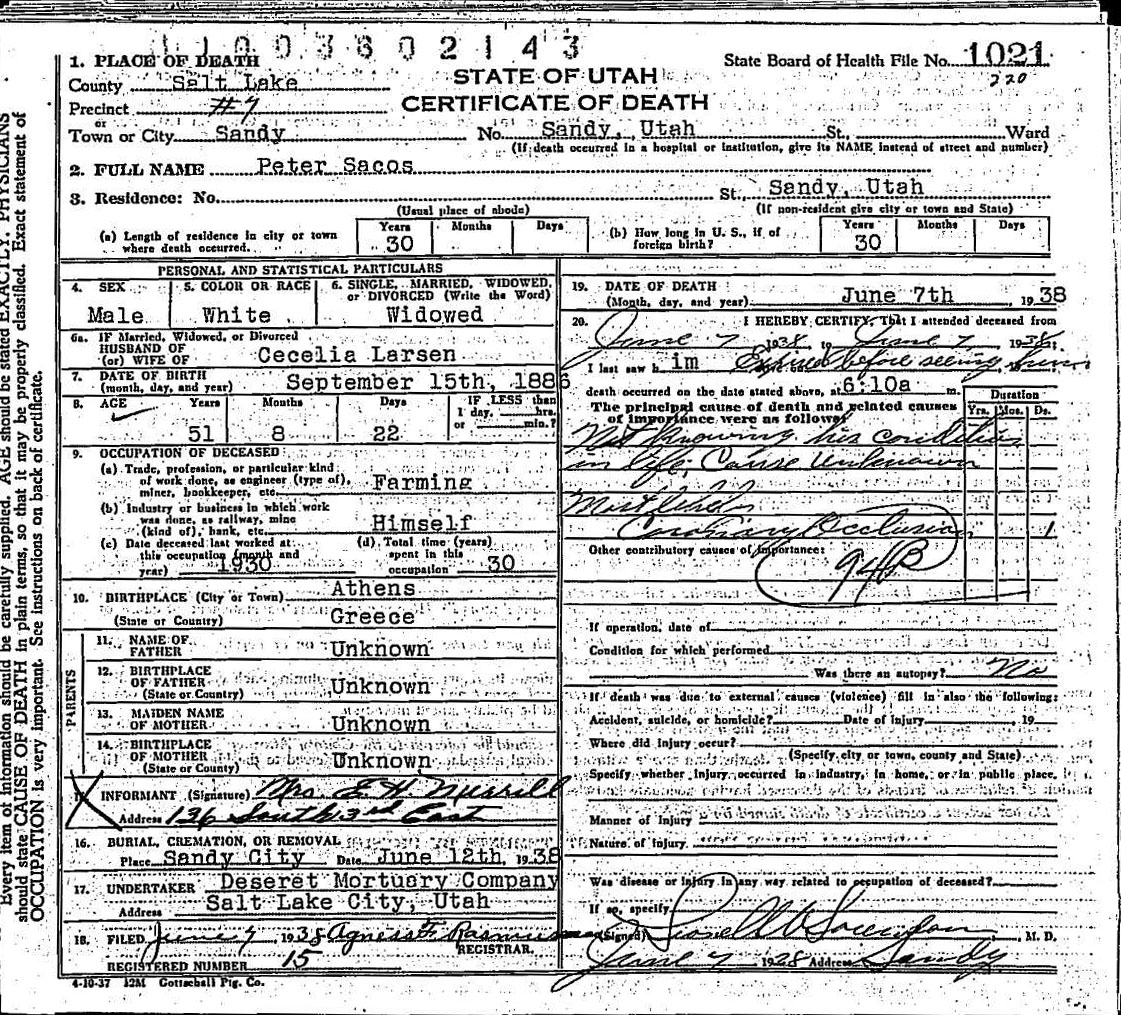 11003602143
1. PLACE OF DEATH
County Salt Lake
Precinct #7
or
Town or City Sandy
STATE OF UTAH
CERTIFICATE OF DEATH
State Board of Health File No. 1021
220
No. Sandy, Utah St., Ward
(If death occurred in a hospital or institution, give its NAME instead of street and number)
2. FULL NAME Peter Sacos
3. Residence: No. St., Sandy, Utah
(Usual place of abode) (If non-resident give city or town and State)
(a) Length of residence in city or town where death occurred. Years 30 Months Days
(b) How long in U. S., if of foreign birth? Years 30 Months Days
PERSONAL AND STATISTICAL PARTICULARS
4. SEX Male
5. COLOR OR RACE White
6. SINGLE, MARRIED, WIDOWED, or DIVORCED (Write the Word) Widowed
6a. IF Married, Widowed, or Divorced
HUSBAND OF
(or) WIFE OF Cecelia Larsen
7. DATE OF BIRTH
(month, day, and year) September 15th, 1886
8. AGE Years Months Days IF LESS than
1 day, hrs.
or min.?
51 8 22
9. OCCUPATION OF DECEASED:
(a) Trade, profession, or particular kind
of work done, as engineer (type of),
miner, bookkeeper, etc. Farming
(b) Industry or business in which work
was done, as railway, mine
(kind of), bank, etc. Himself
(c) Date deceased last worked at
this occupation (month and
year) 1930
(d) Total time (years)
spent in this
occupation 30
10. BIRTHPLACE (City or Town) Athens
(State or Country) Greece
PARENTS
11. NAME OF
FATHER Unknown
12. BIRTHPLACE
OF FATHER
(State or Country) Unknown
13. MAIDEN NAME
OF MOTHER Unknown
14. BIRTHPLACE
OF MOTHER
(State or Country) Unknown
INFORMANT (Signature) Mrs. E H Merrill
Address 126 South 3rd East
16. BURIAL, CREMATION, OR REMOVAL
Place Sandy City Date June 12th, 1938
17. UNDERTAKER Deseret Mortuary Company
Address Salt Lake City, Utah
18. FILED June 7, 1938 Agness F. Rasmussen
REGISTRAR.
REGISTERED NUMBER 15
4-10-37 12M Gottschall Ptg. Co.
19. DATE OF DEATH
(Month, day, and year) June 7th 1938
20. I HEREBY CERTIFY, That I attended deceased from
June 7 1938 to June 7 1938;
I last saw him Expired before seeing him
death occurred on the date stated above, at 6:10a m.
The principal cause of death and related causes
of importance were as follows:
Duration
Yrs. Mos. Ds.
Not knowing his condition
in life, Cause Unknown
Most likely
Coronary Occlusion 1
Other contributory causes of importance:
94B
If operation, date of
Condition for which performed
Was there an autopsy? No
If death was due to external causes (violence) fill in also the following:
Accident, suicide, or homicide? Date of injury , 19
Where did injury occur?
(Specify city or town, county and State)
Specify whether injury occurred in industry, in home, or in public place.
Manner of injury
Nature of injury
Was disease or injury in any way related to occupation of deceased?
If so, specify
(Signed) M. D.
June 7 1938 Address Sandy
Every item of information should be carefully supplied. AGE should be stated EXACTLY. PHYSICIANS
should state CAUSE OF DEATH in plain terms, so that it may be properly classified. Exact statement of
OCCUPATION is very important. See instructions on back of certificate.